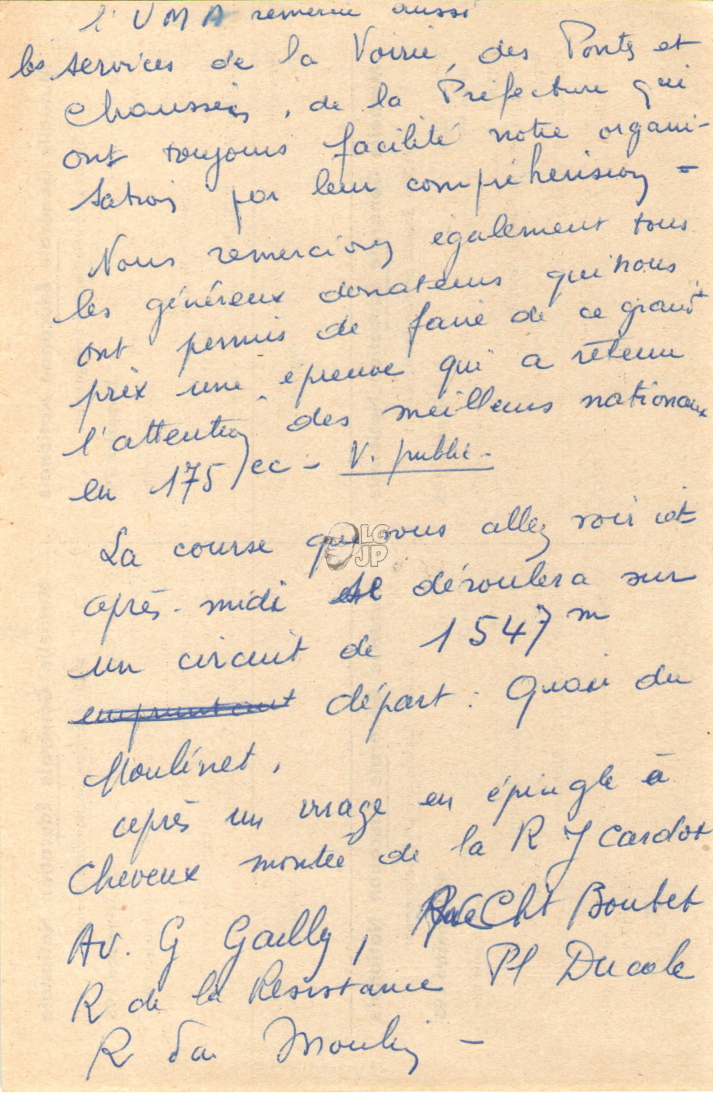 l'UMA remercie aussi
les services de la Voirie, des Ponts et
Chaussées, de la Préfecture qui
ont toujours facilité notre organi-
sation par leur compréhension -
Nous remercions également tous
les généreux donateurs qui nous
ont permis de faire de ce grand
prix une épreuve qui a retenu
l'attention des meilleurs nationaux
en 175/cc - V. public -
La course que vous allez voir cet
LG
JP
après-midi se déroulera sur
un circuit de 1547 m
empruntant départ : Quai du
Moulinet,
après un virage en épingle à
Cheveux montée de la R J Cardot
Av. G Gailly, Rue Cht Boutet
R de la Résistance Pl Ducale
R du Moulin -